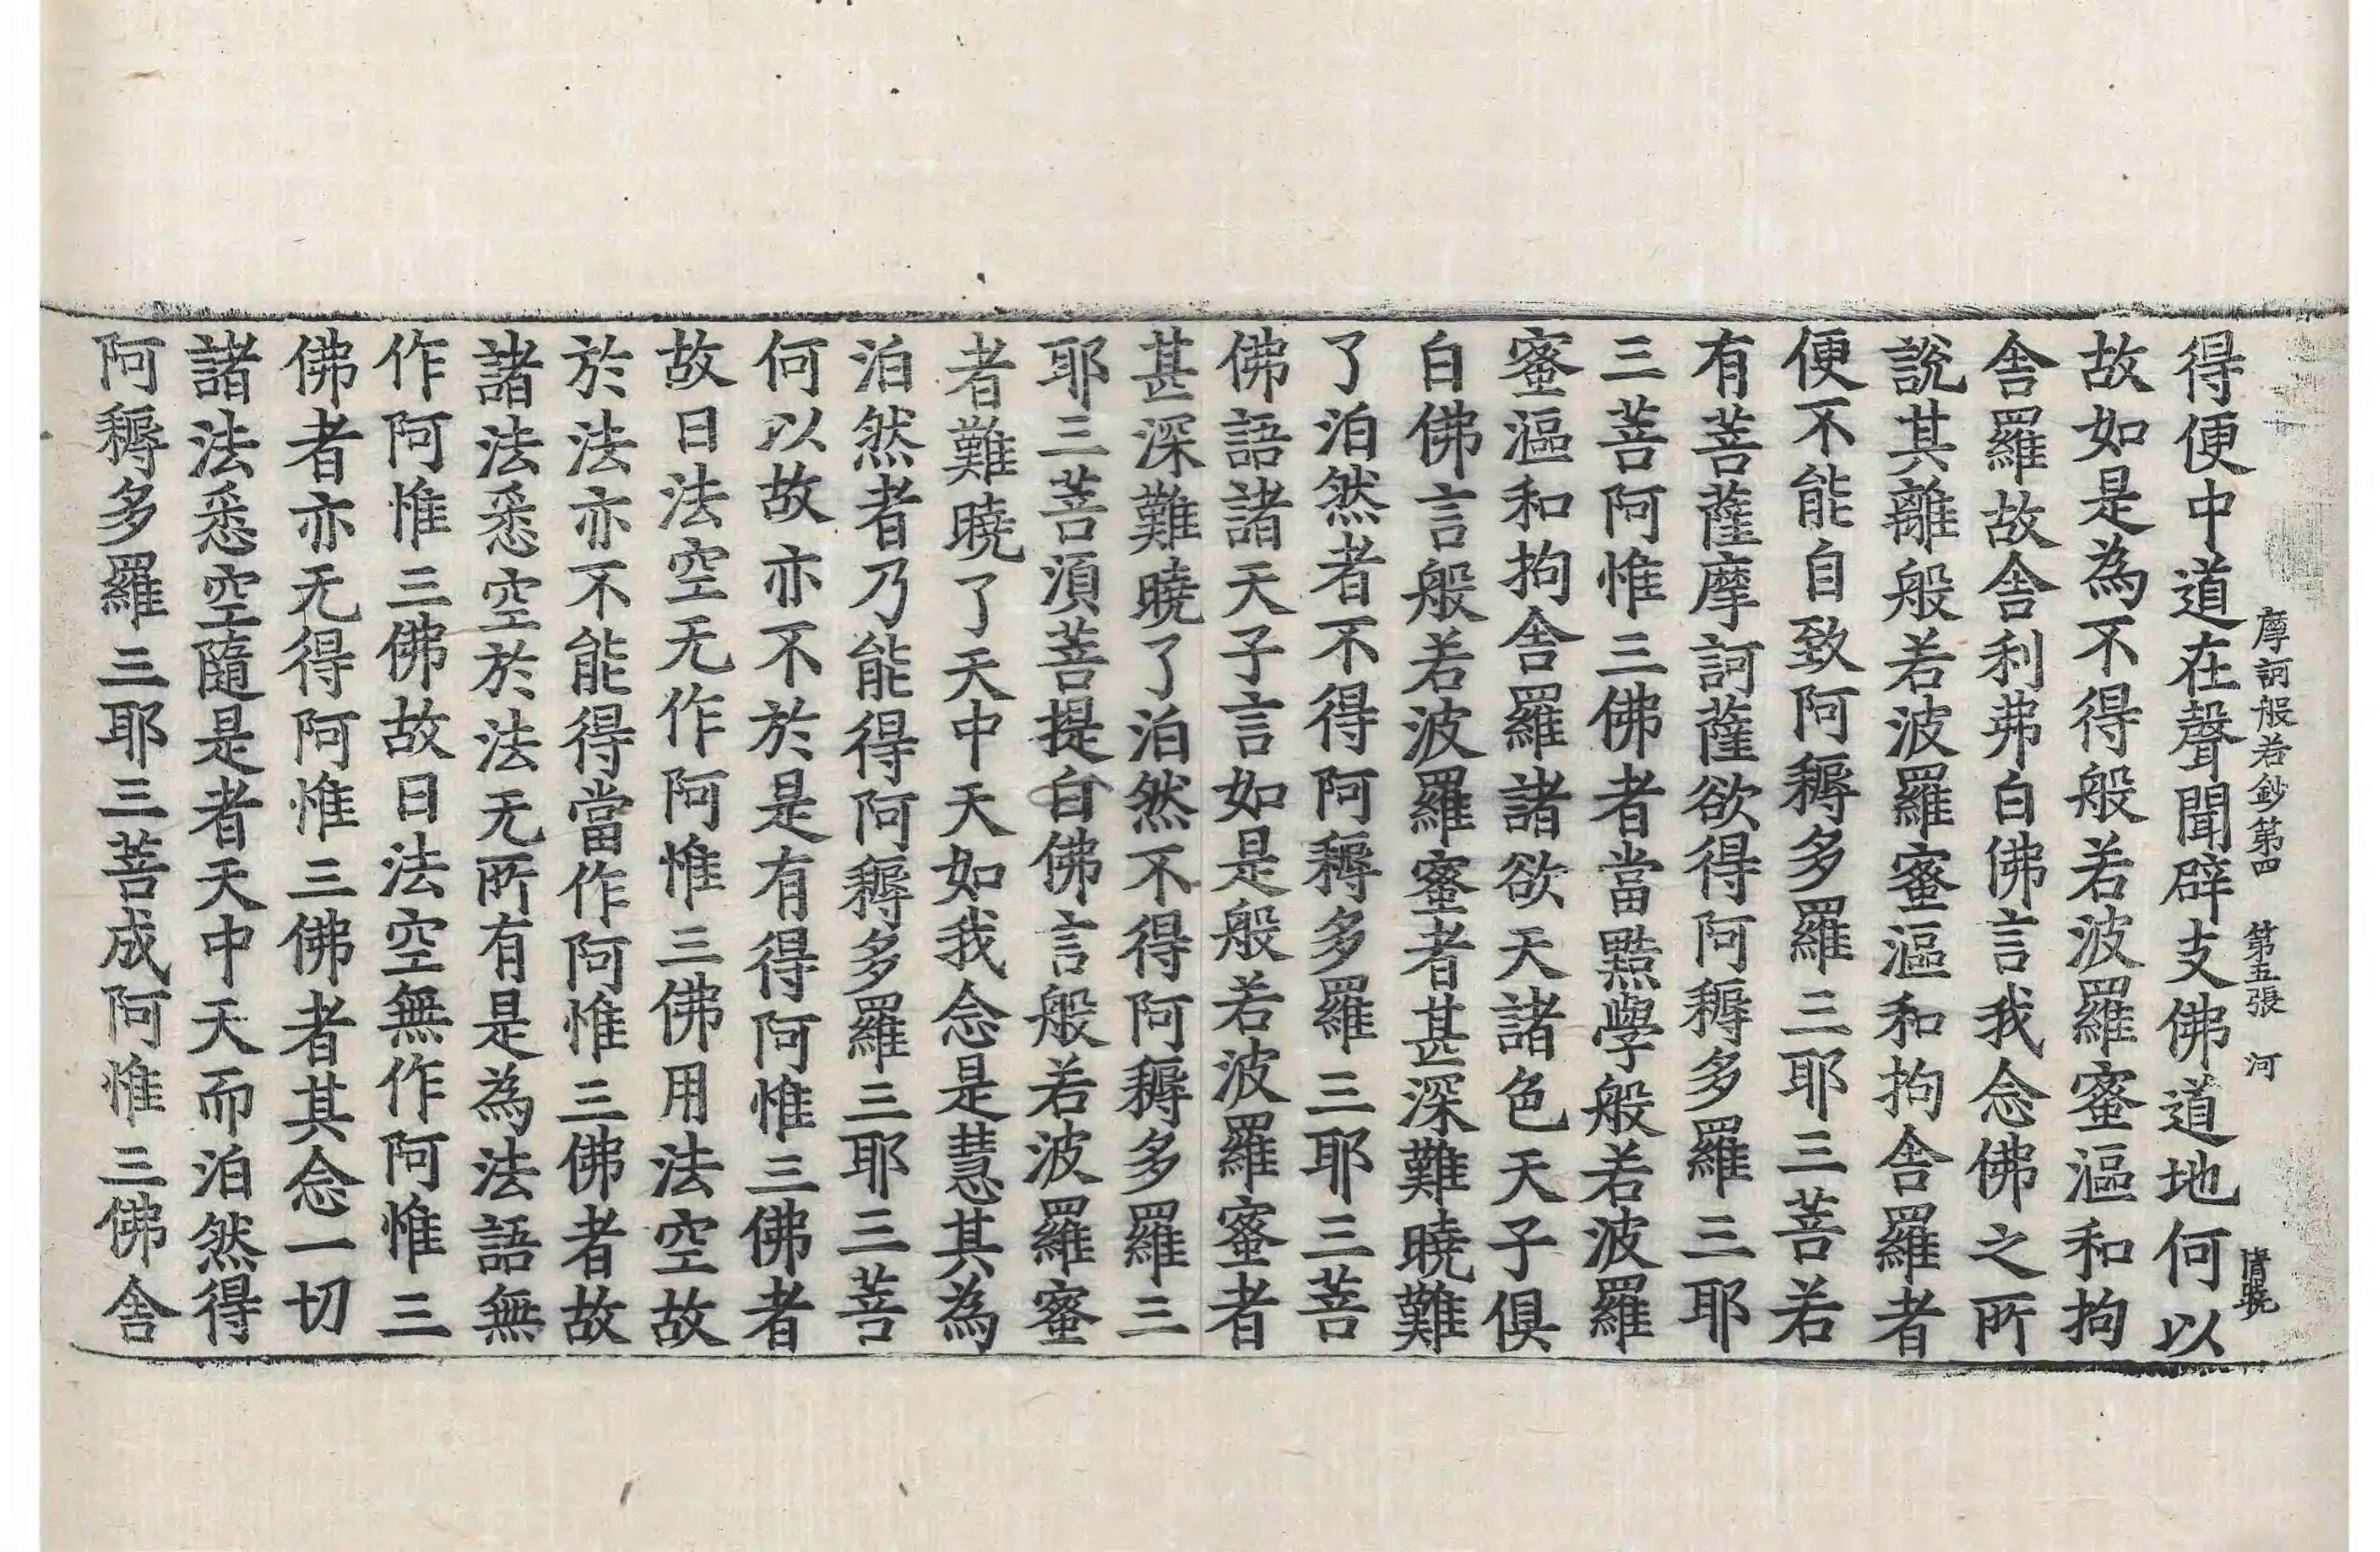 摩訶般若鈔第四　第五張　河
得便中道在聲聞辟支佛道地何以
故如是為不得般若波羅蜜漚和拘
舍羅故舍利弗白佛言我念佛之所
說其離般若波羅蜜漚和拘舍羅者
便不能自致阿耨多羅三耶三菩若
有菩薩摩訶薩欲得阿耨多羅三耶
三菩阿惟三佛者當黠學般若波羅
蜜漚和拘舍羅諸欲天諸色天子俱
白佛言般若波羅蜜者甚深難曉難
了泊然者不得阿耨多羅三耶三菩
佛語諸天子言如是般若波羅蜜者
甚深難曉了泊然不得阿耨多羅三
耶三菩湏菩提白佛言般若波羅蜜
者難曉了天中天如我念是慧其為
泊然者乃能得阿耨多羅三耶三菩
何以故亦不於是有得阿惟三佛者
故曰法空无作阿惟三佛用法空故
於法亦不能得當作阿惟三佛者故
諸法悉空於法无所有是為法語無
作阿惟三佛故曰法空無作阿惟三
佛者亦无得阿惟三佛者其念一切
諸法悉空隨是者天中天而泊然得
阿耨多羅三耶三菩成阿惟三佛舍